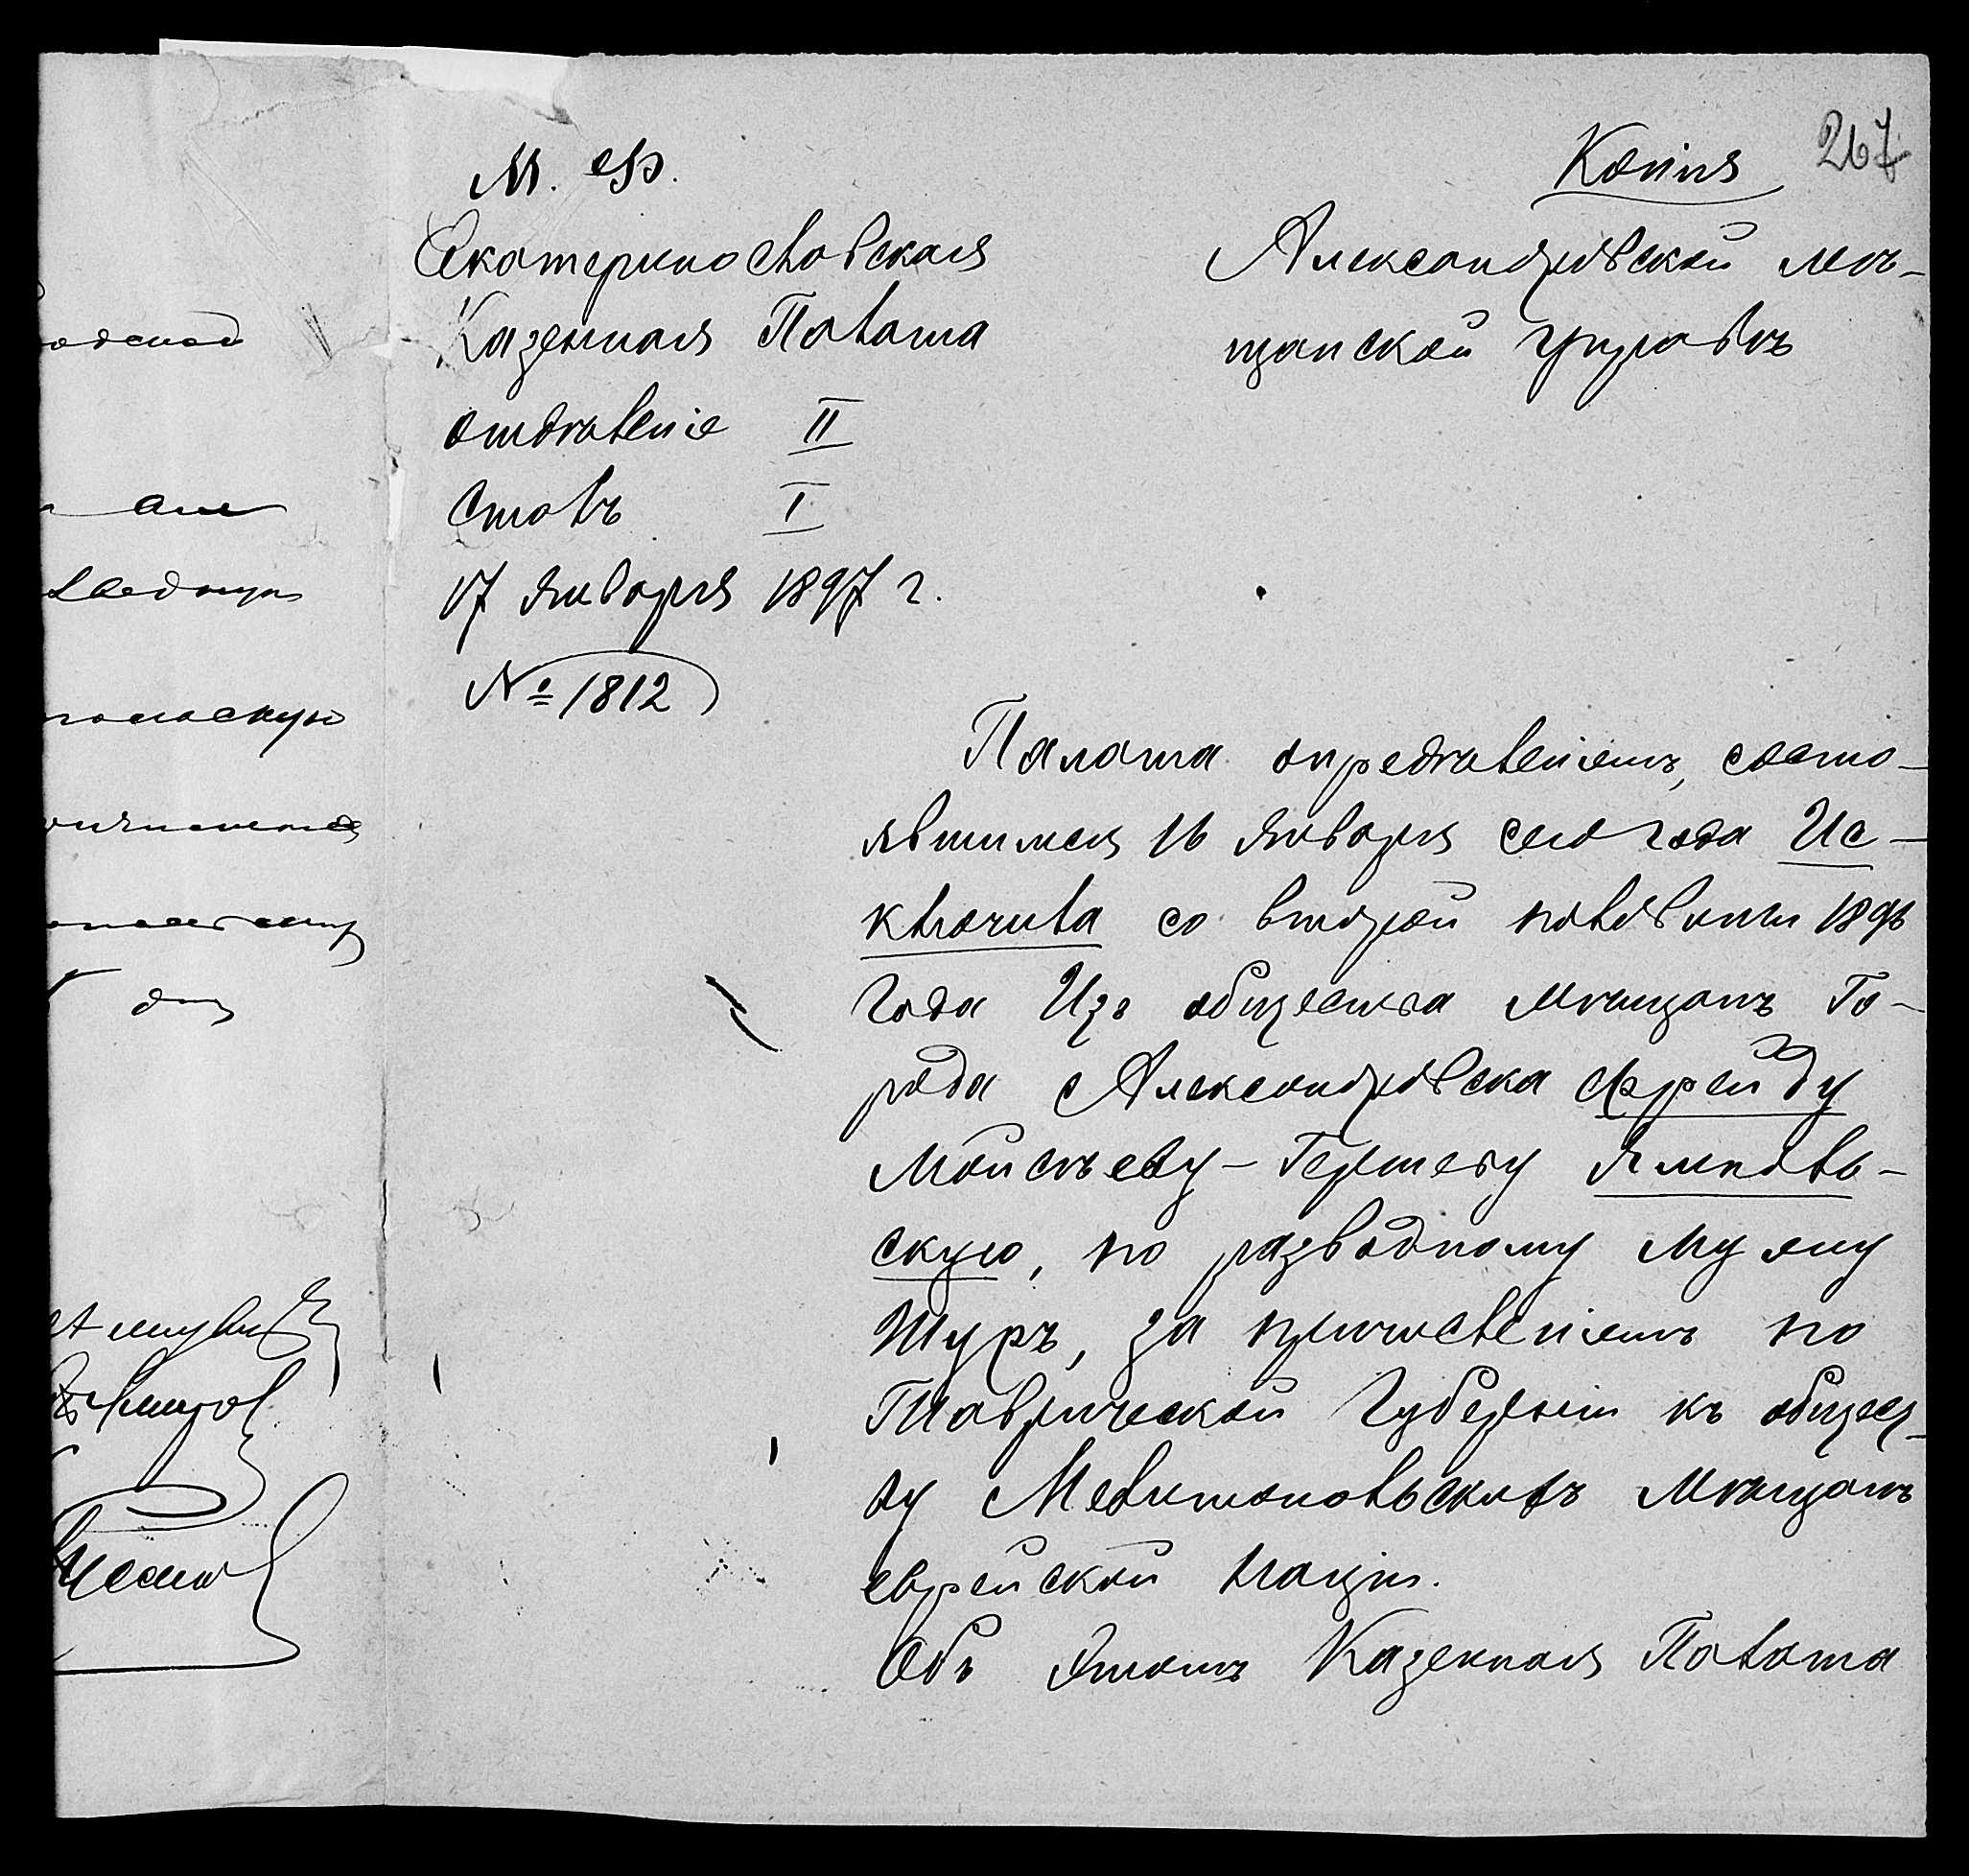 267
Копія
М. Ф.
Екатеринославская
Казенная Палата
отдѣленіе II
столъ I
17 Января 1897 г.
№ 1812
Александровской мѣ-
щанской Управѣ
Палата опредѣленіемъ, состо-
явшимся 16 Января сего года Ис-
ключила со второй половины 1896
года Изъ общества мѣщанъ Го-
рода Александровска Фрейду
Мойсѣеву-Гершеву Ямполь-
скую, по разводному мужу
Шуръ, за причисленіемъ по
Таврической Губерніи къ общес-
ву Мелитопольскихъ Мѣщанъ
еврейской націи.
Объ этомъ Казенная Палата